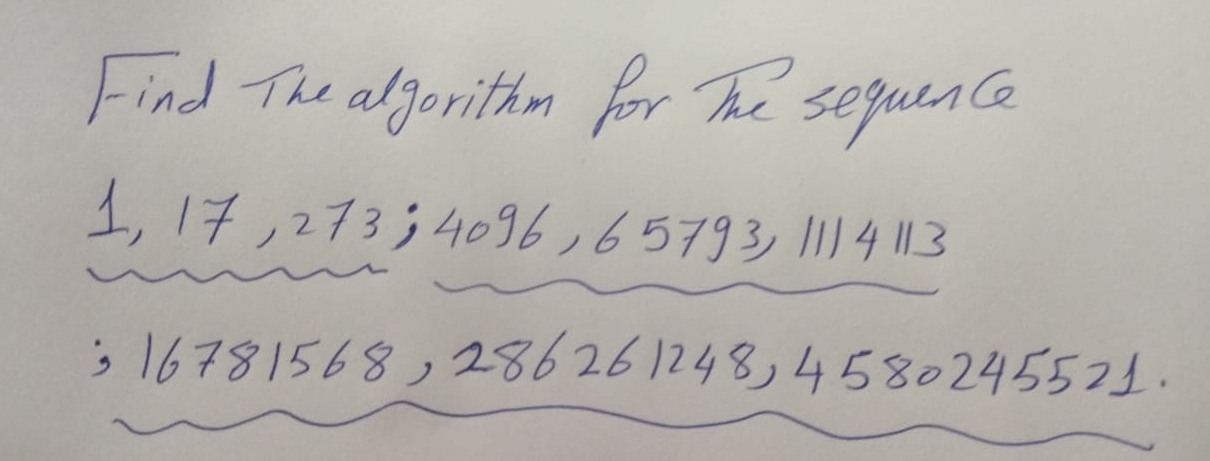 Find The algorithm for The sequence
1, 17, 273; 4096, 65793, 1114113
; 16781568, 286261248, 4580245521.